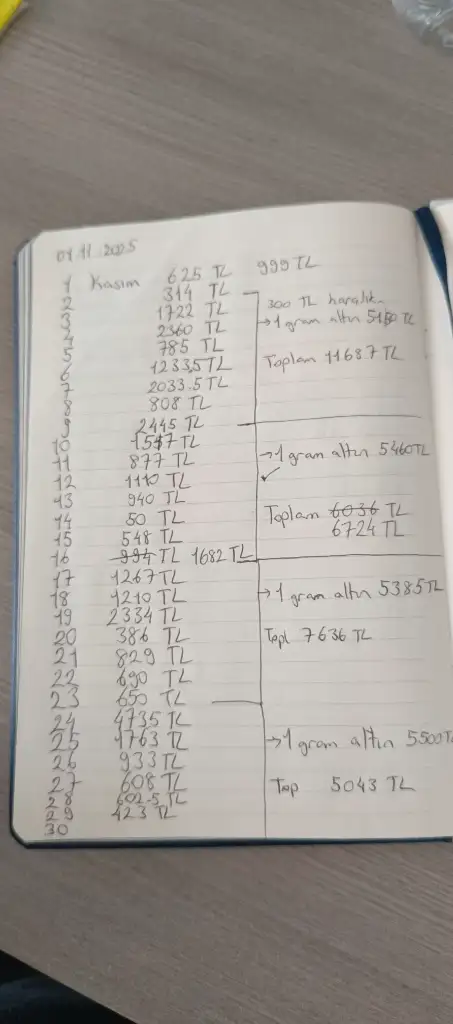 01.11.2025
1 Kasım 625 TL 999 TL
2 314 TL
3 1722 TL
4 2360 TL
5 785 TL
6 1233,5 TL
7 2033.5 TL
8 808 TL
9 2445 TL
10 1557 TL
11 877 TL
12 1110 TL
13 940 TL
14 50 TL
15 548 TL
16 994 TL 1682 TL
17 1267 TL
18 1210 TL
19 2334 TL
20 386 TL
21 829 TL
22 690 TL
23 650 TL
24 4735 TL
25 1763 TL
26 933 TL
27 608 TL
28 602.5 TL
29 423 TL
30
300 TL harçlık
→1 gram altın 5150 TL
Toplam 11687 TL
→1 gram altın 5460TL
✓
Toplam 6036 TL
6724 TL
→1 gram altın 5385TL
Topl 7636 TL
→1 gram altın 5500TL
Top 5043 TL